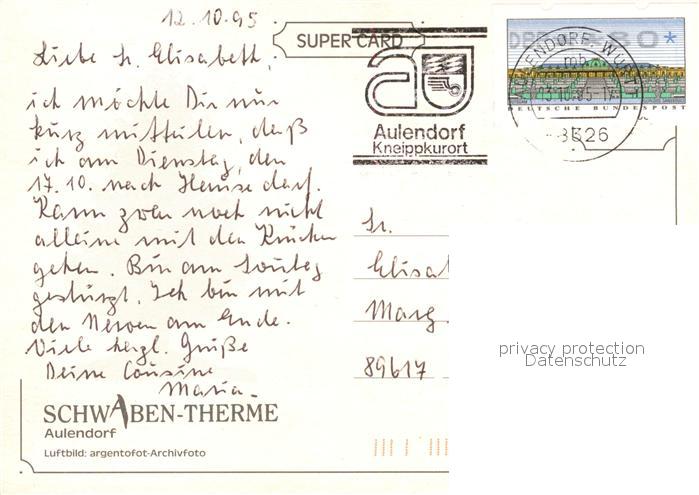 12.10.95
SUPER CARD
Liebe Sr. Elisabeth,
ich möchte Dir nur
kurz mitteilen, daß
ich am Dienstag, den
17.10. nach Hause darf.
Kann zwar noch nicht
alleine mit den Krücken
gehen. Bin am Sonntag
gestürzt. Ich bin mit
den Nerven am Ende.
Viele herzl. Grüße
Deine Cousine
Maria.
SCHWABEN-THERME
Aulendorf
Luftbild: argentofot-Archivfoto
Aulendorf
Kneippkurort
DEUTSCHE BUNDESPOST
AULENDORF, WÜRTT
mb
88326
Sr.
Elisa
Marg
89617
privacy protection
Datenschutz